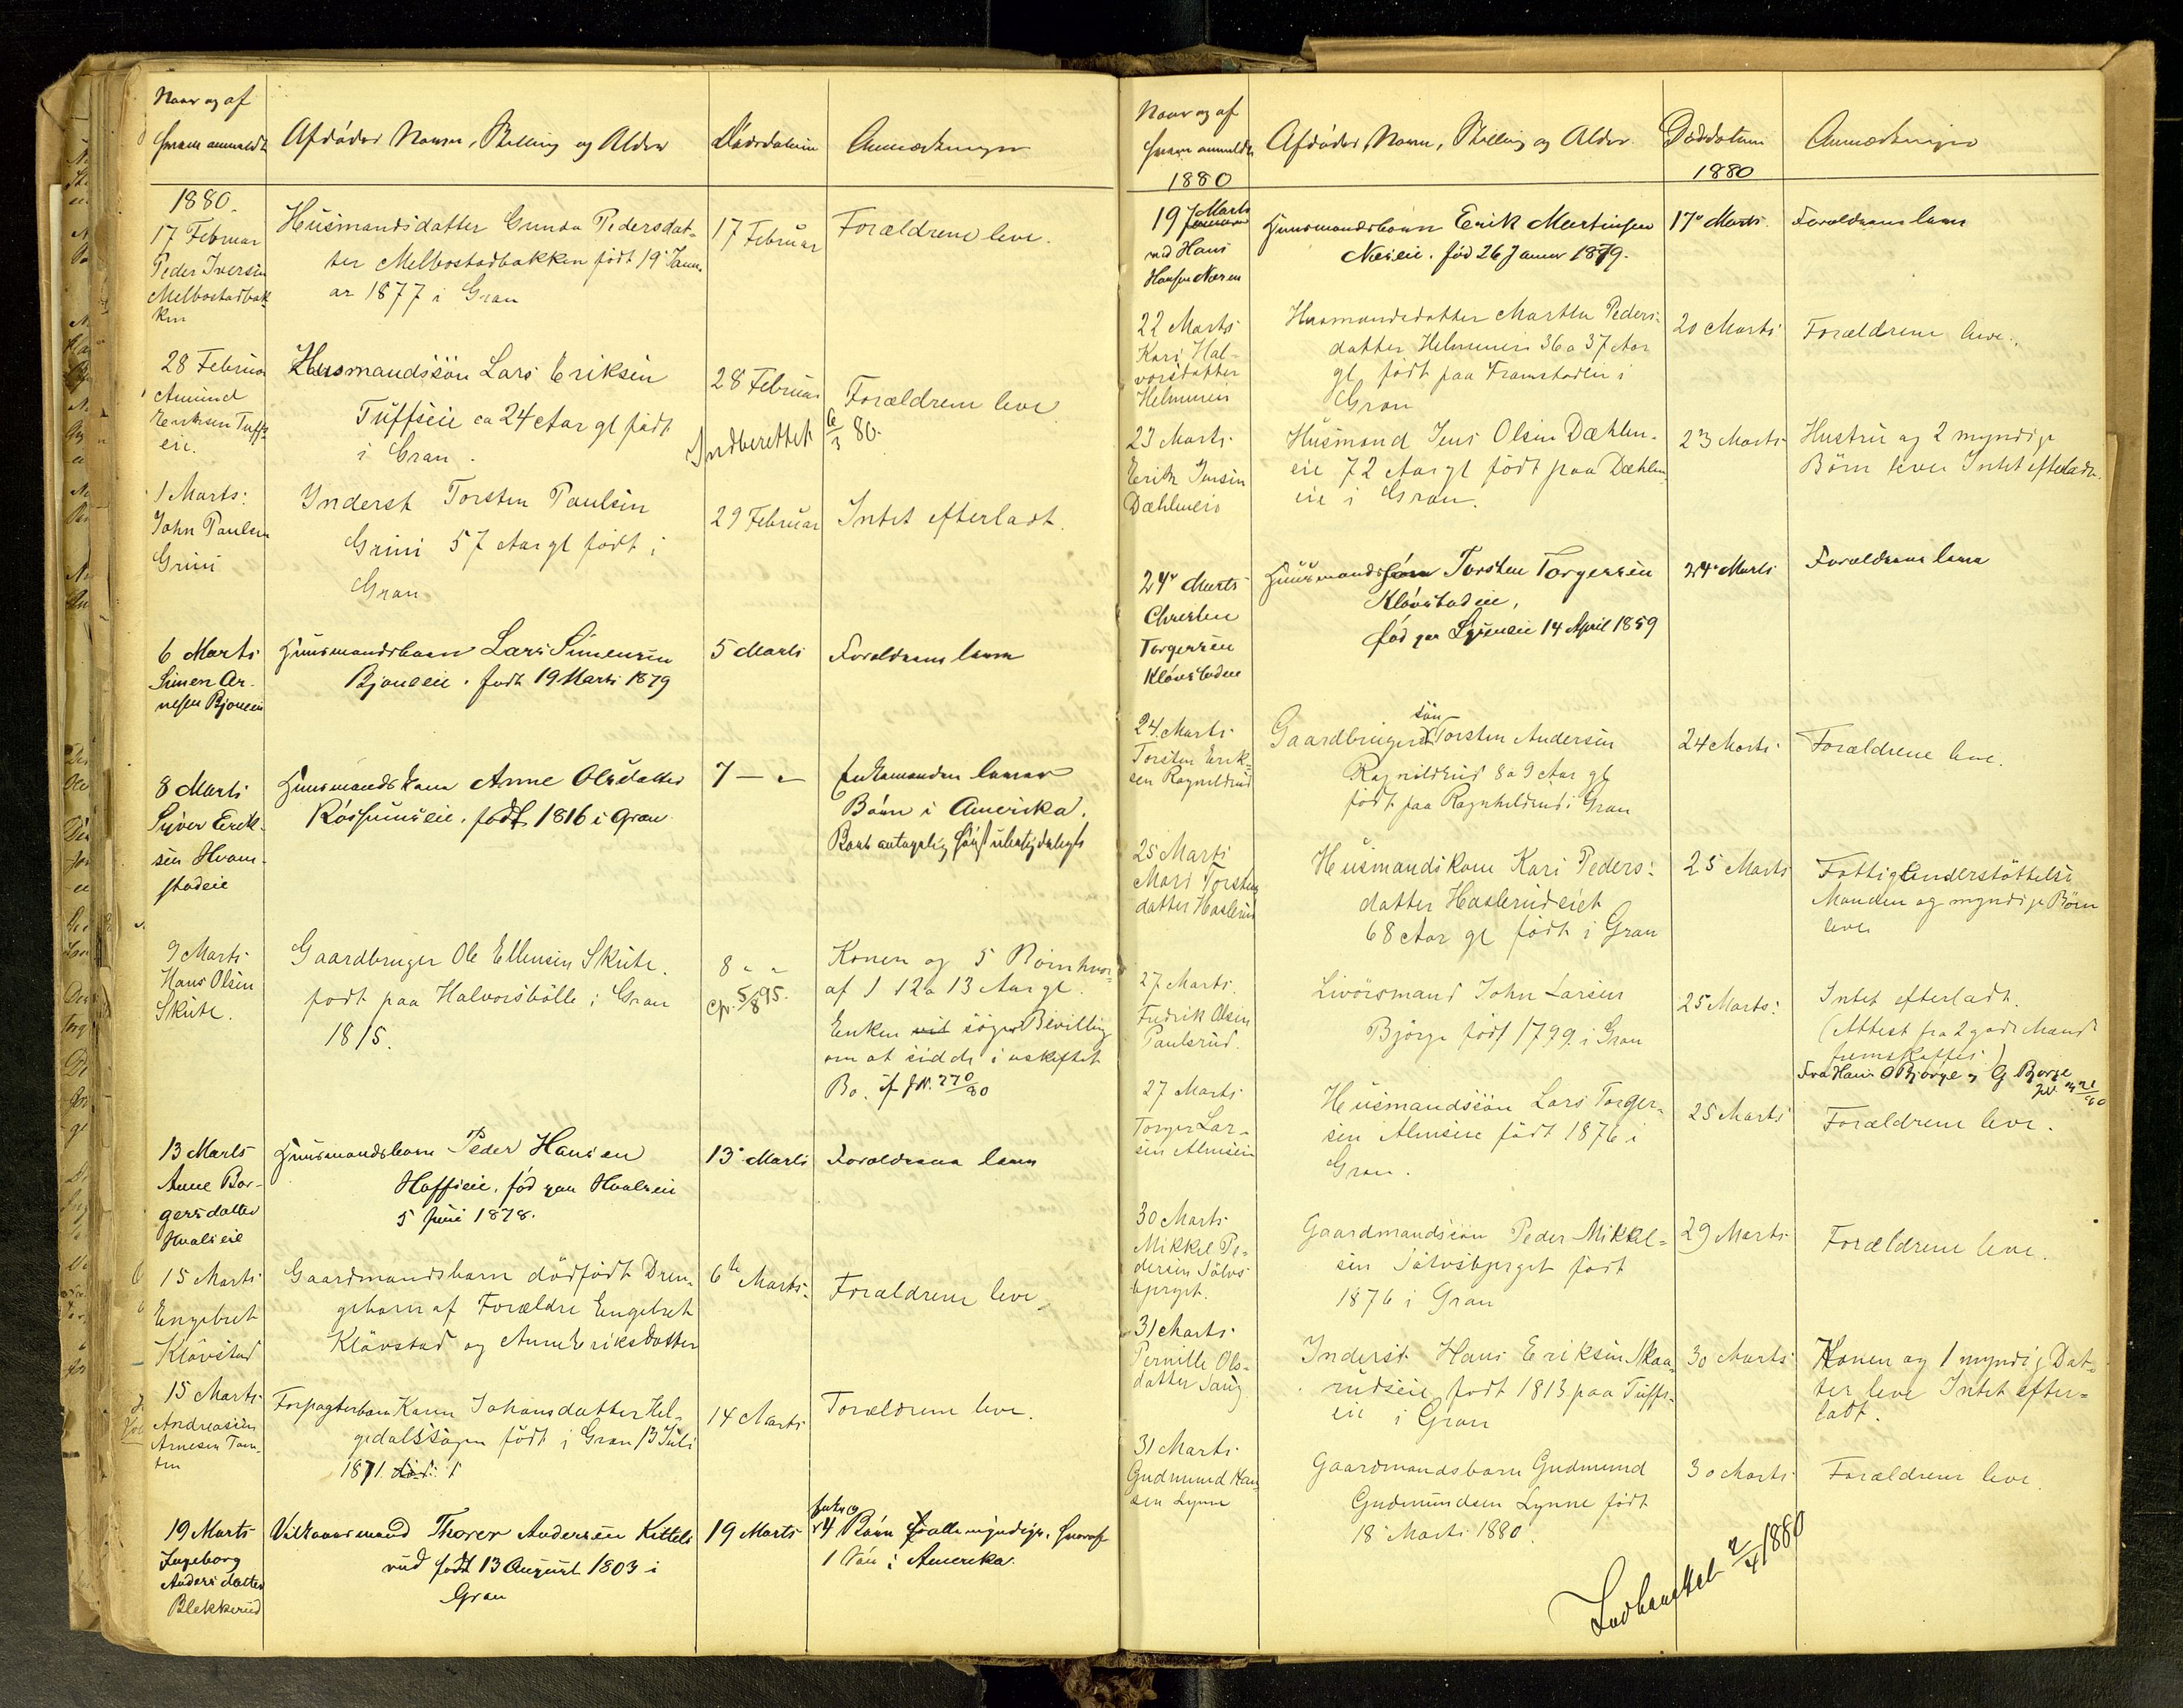 Naar og af
hvem anmeldt
Afdødes Navn, Stilling og Alder
Dødsdatum
Anmærkninger
1880.
17 Februar
Peder Iversen
Melbostadbak
ken
Husmandsdatter Gunda Pedersdat-
ter Melbostadbakken født 19 Janu-
ar 1877 i Gran
17 Februar
Forældrene leve.
28 Februar
Amund
Eriksen Tuffs
eie.
Husmandssøn Lars Eriksen
Tuffseie ca 24 Aar gl født
i Gran.
28 Februar
Forældrene leve
Indberettet 6/3 80.
1 Marts
John Paulsen
Grini
Inderst Torsten Paulsen
Grini 57 Aar gl født i
Gran
29 Februar
Intet efterladt.
6 Marts
Simen Ar-
nesen Bjoneeie
Huusmandsbarn Lars Simensen
Bjoneeie. født 19 Marts 1879
5 Marts
Forældrene leve
8 Marts
Syver Erik-
sen Hvam-
stadeie
Huusmandskone Anne Olsdatter
Røssumseie, født 1816 i Gran
7 — "
Enkemanden lever
Børn i Amerika.
9 Marts
Hans Olsen
Skute.
Gaardbruger Ole Ellensen Skute.
født paa Halvorsbølle i Gran
1815.
8 " "
5/8 95.
Konen og 5 Børn hvor-
af 1 12 a 13 Aar gl.
Enken vil søge Bevilling
om at sidde i uskiftet
Bo. 270/80
13 Marts
Anne Bor-
gersdatter
Hvalseie
Huusmandsbarn Peder Hansen
Hoffseie, fød paa Hvalseie
5 Juni 1878.
13 Marts
Forældrene leve
15 Marts
Engebret
Kløvstad
Gaardmandsbarn dødfødt Dren-
gebarn af Forældre Engebret
Kløvstad og Anne Eriksdatter
6te Marts
Forældrene leve
15 Marts
Andreas
Arnesen Tom-
ten
Forpagterbarn Karen Johansdatter Hel-
gedalssagen født i Gran 13 Juli
1871 død:
14 Marts
Forældrene leve.
19 Marts
Ingeborg
Andersdatter
Blekkerud
Vilkaarsmand Thorer Andersen Kittels
rud født 13 August 1803 i
Gran
19 Marts
Enke og
4 Børn alle myndige, hvoraf
1 Søn i Amerika.
Naar og af
hvem anmeldt
1880
Afdødes Navn, Stilling og Alder.
Dødsdatum
1880
Anmærkninger
19 Marts
ved Hans
Hansen Næren
Huusmandsbarn Erik Martinsen
Næseie. fød 26 Januar 1879.
17 Marts.
Forældrene leve
22 Marts
Kari Hal-
vorsdatter
Helmeneie
Husmandsdatter Marthe Peders-
datter Helmeneie 36 a 37 Aar
gl født paa Framstadeie i
Gran
20 Marts
Forældrene leve.
23 Marts
Erik Jensen
Dæhleneie
Husmand Jens Olsen Dæhlen-
eie 72 Aar gl født paa Dæhlen
eie i Gran.
23 Marts
Hustru og 2 myndige
Børn lever Intet efterladt.
24 Marts
Christen
Torgersen
Kløvstadeie
Huusmandssøn Torsten Torgersen
Kløvstadeie,
fød paa Lysseneie 14 April 1859
24 Marts
Forældrene leve
24 Marts
Torsten Erik-
sen Ragnildrud
søn
Gaardbruger Torsten Andersen
Ragnildrud 8 a 9 Aar gl
født paa Ragnhildrud i Gran
24 Marts
Forældrene leve.
25 Marts
Mari Torstens
datter Haslerud
Husmandskone Kari Peders-
datter Haslerudeiet
68 Aar gl født i Gran
25 Marts
Fattigunderstøttelse
Manden og myndige Børn
lever
27 Marts.
Fredrik Olsen
Paulsrud.
Livørsmand John Larsen
Bjørge født 1799 i Gran
25 Marts
Intet efterladt.
(Attest fra 2 gode Mænd
fremskaffes)
Fra Hans O Bjørge og G Bjørge
27 Marts
Torger Lar-
sen Almseie
Husmandssøn Lars Torger-
sen Almseie født 1876 i
Gran.
25 Marts
Forældrene leve.
30 Marts
Mikkel Pe-
dersen Sølvs
bjerget.
Gaardmandssøn Peder Mikkel-
sen Sølvsbjerget født
1876 i Gran
29 Marts
Forældrene leve.
31 Marts
Pernille Ols-
datter Saug
Inderst Hans Eriksen Skaa-
rudseie født 1813 paa Tuffs-
eie i Gran
30 Marts
Konen og 1 myndig Dat-
ter leve Intet efter-
ladt.
31 Marts
Gudmund Han
sen Lynne
Gaardmandsbarn Gudmund
Gudmundsen Lynne født
18 Marts 1880.
30 Marts
Forældrene leve
Indberettet 2/4 1880